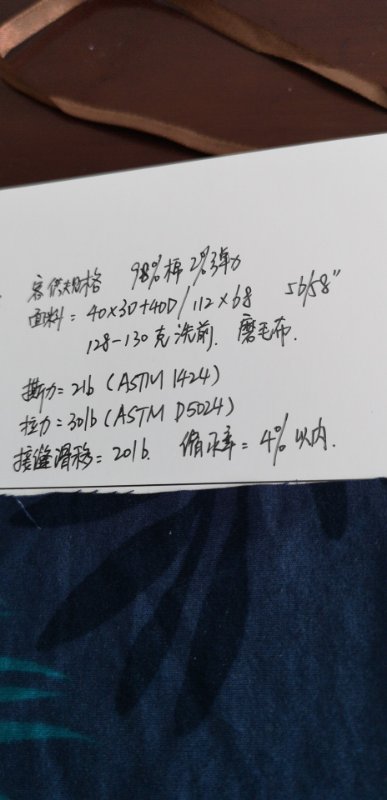 客供规格 98%棉 2%弹力
面料=40×30+40D/112×68 56/58"
128-130克洗前. 磨毛布.
撕力=2lb (ASTM 1424)
拉力=30lb (ASTM D5024)
接缝滑移=20lb. 缩水率=4%以内.